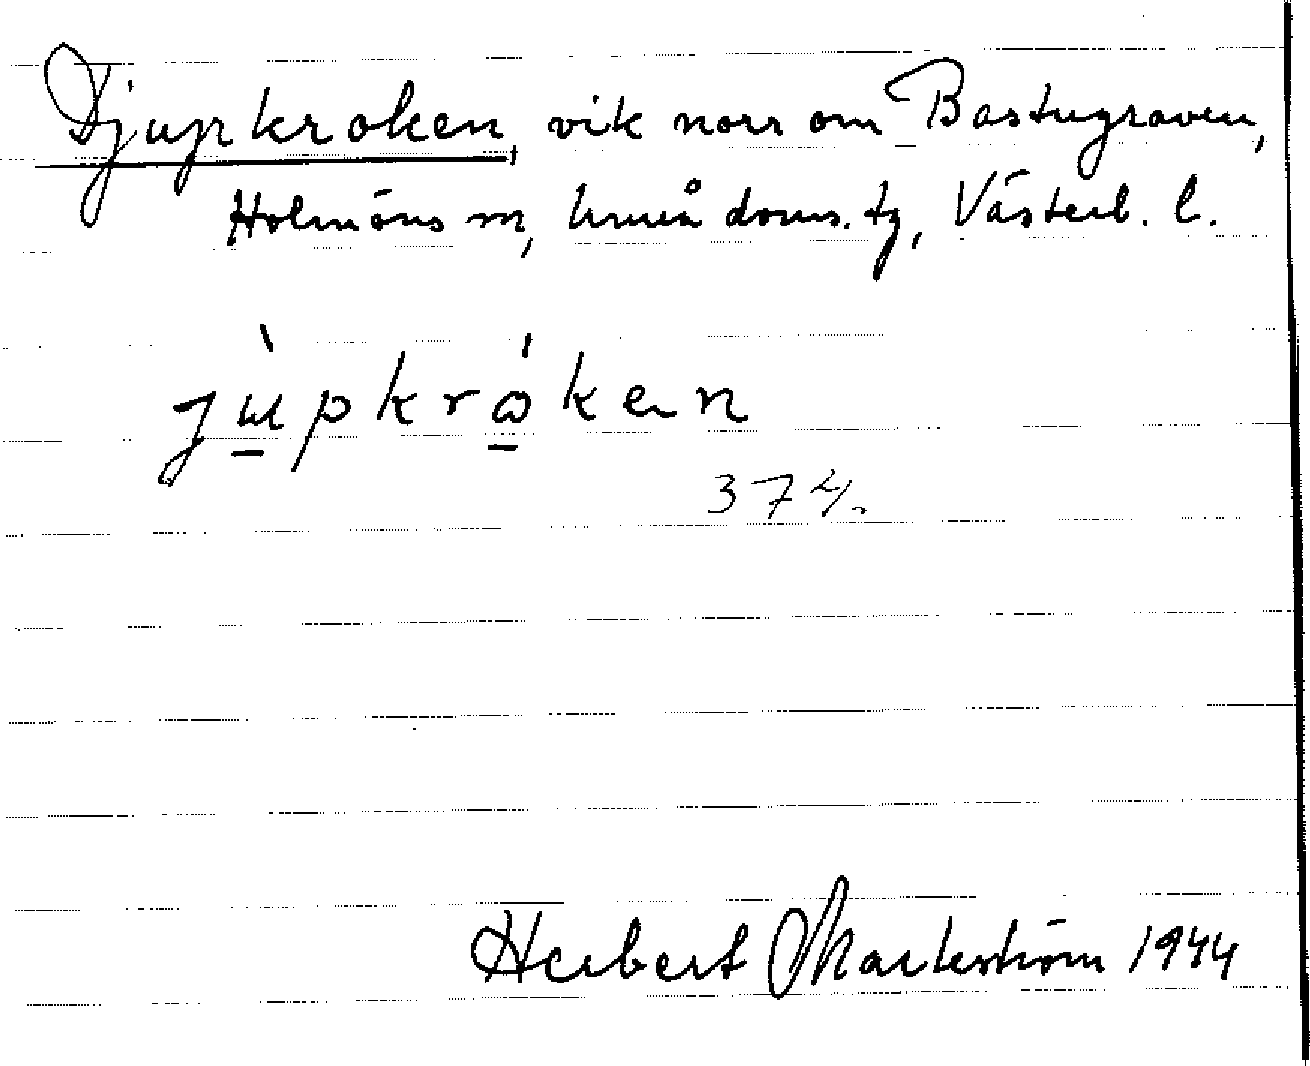 Djupkroken, vik norr om Bastugraven,
Holmöns sn, Umeå doms. tg, Västerb. l.
jùpkróken
37
Herbert Markström 1944